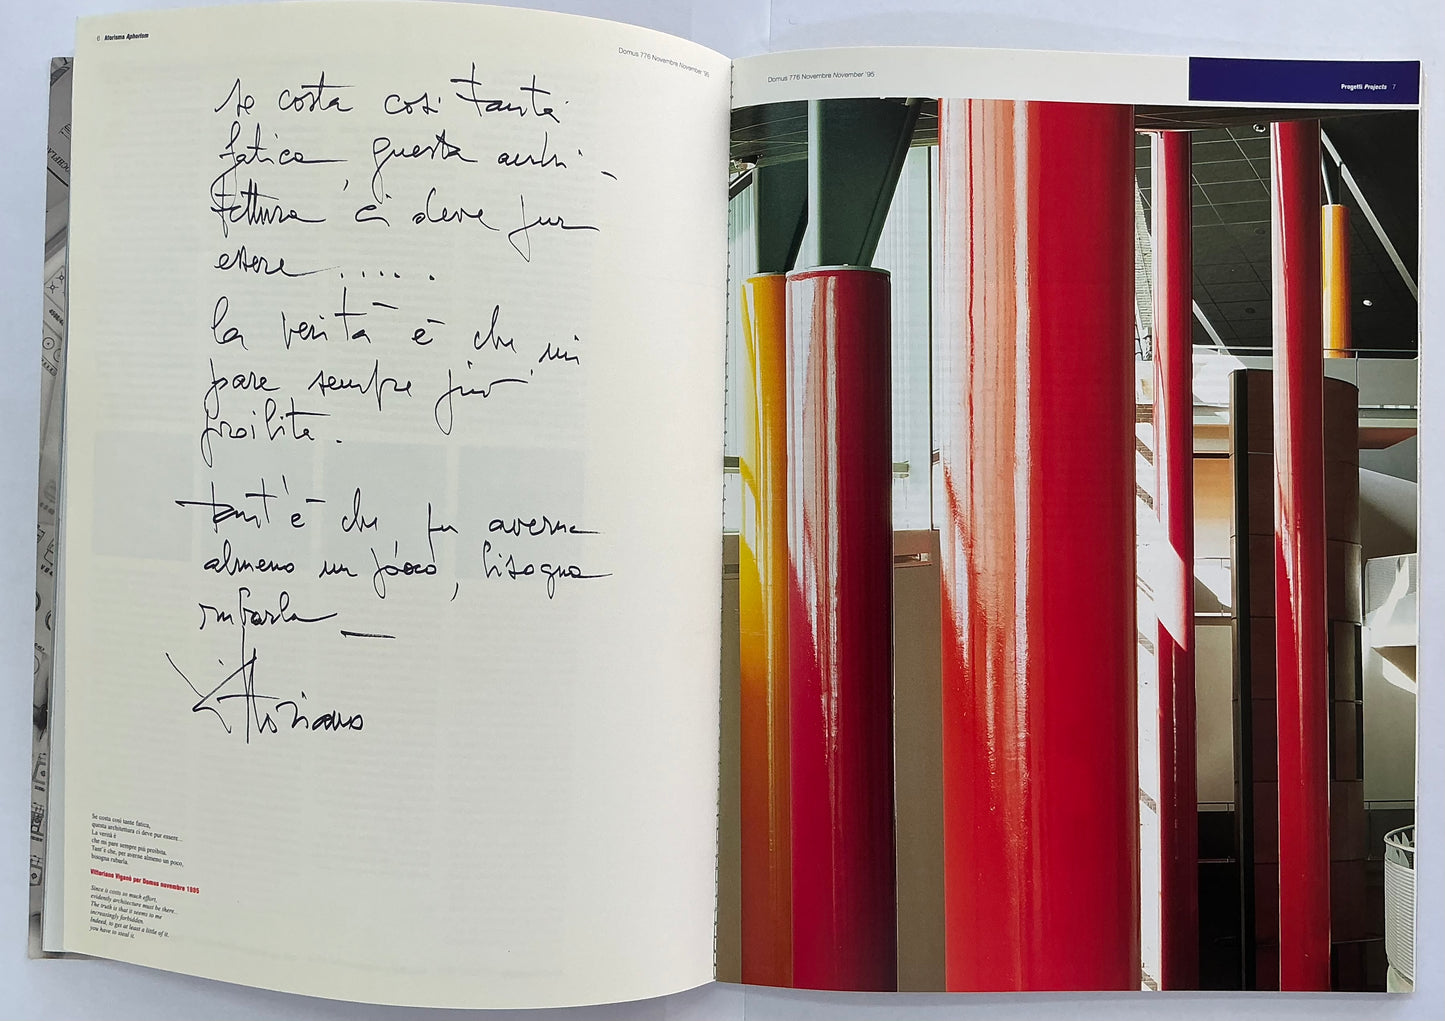 6 Aforisma Aphorism
Domus 776 Novembre November '95
se costa così tanta
fatica questa archi-
tettura ci deve pur
essere .....
la verità è che mi
pare sempre più
proibita.
tant'è che per averne
almeno un poco, bisogna
rubarla _
Vittoriano
Se costa così tante fatica,
questa architettura ci deve pur essere...
La verità è
che mi pare sempre più proibita.
Tant'è che, per averne almeno un poco,
bisogna rubarla.
Vittoriano Viganò per Domus novembre 1995
Since it costs so much effort,
evidently architecture must be there...
The truth is that it seems to me
increasingly forbidden.
Indeed, to get at least a little of it,
you have to steal it.
Domus 776 Novembre November '95
Progetti Projects 7